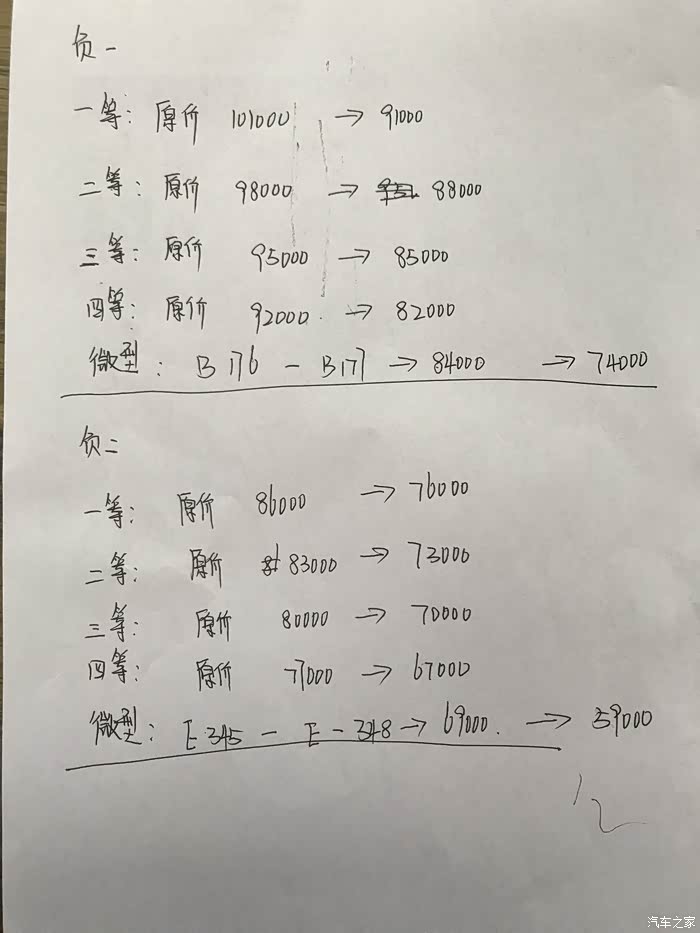 负一
一等: 原价 101000 → 91000
二等: 原价 98000 → 88000
三等: 原价 95000 → 85000
四等: 原价 92000 → 82000
微型: B176 - B177 → 84000 → 74000
负二
一等: 原价 86000 → 76000
二等: 原价 83000 → 73000
三等: 原价 80000 → 70000
四等: 原价 77000 → 67000
微型: E345 - E-348 → 69000. → 59000
汽车之家